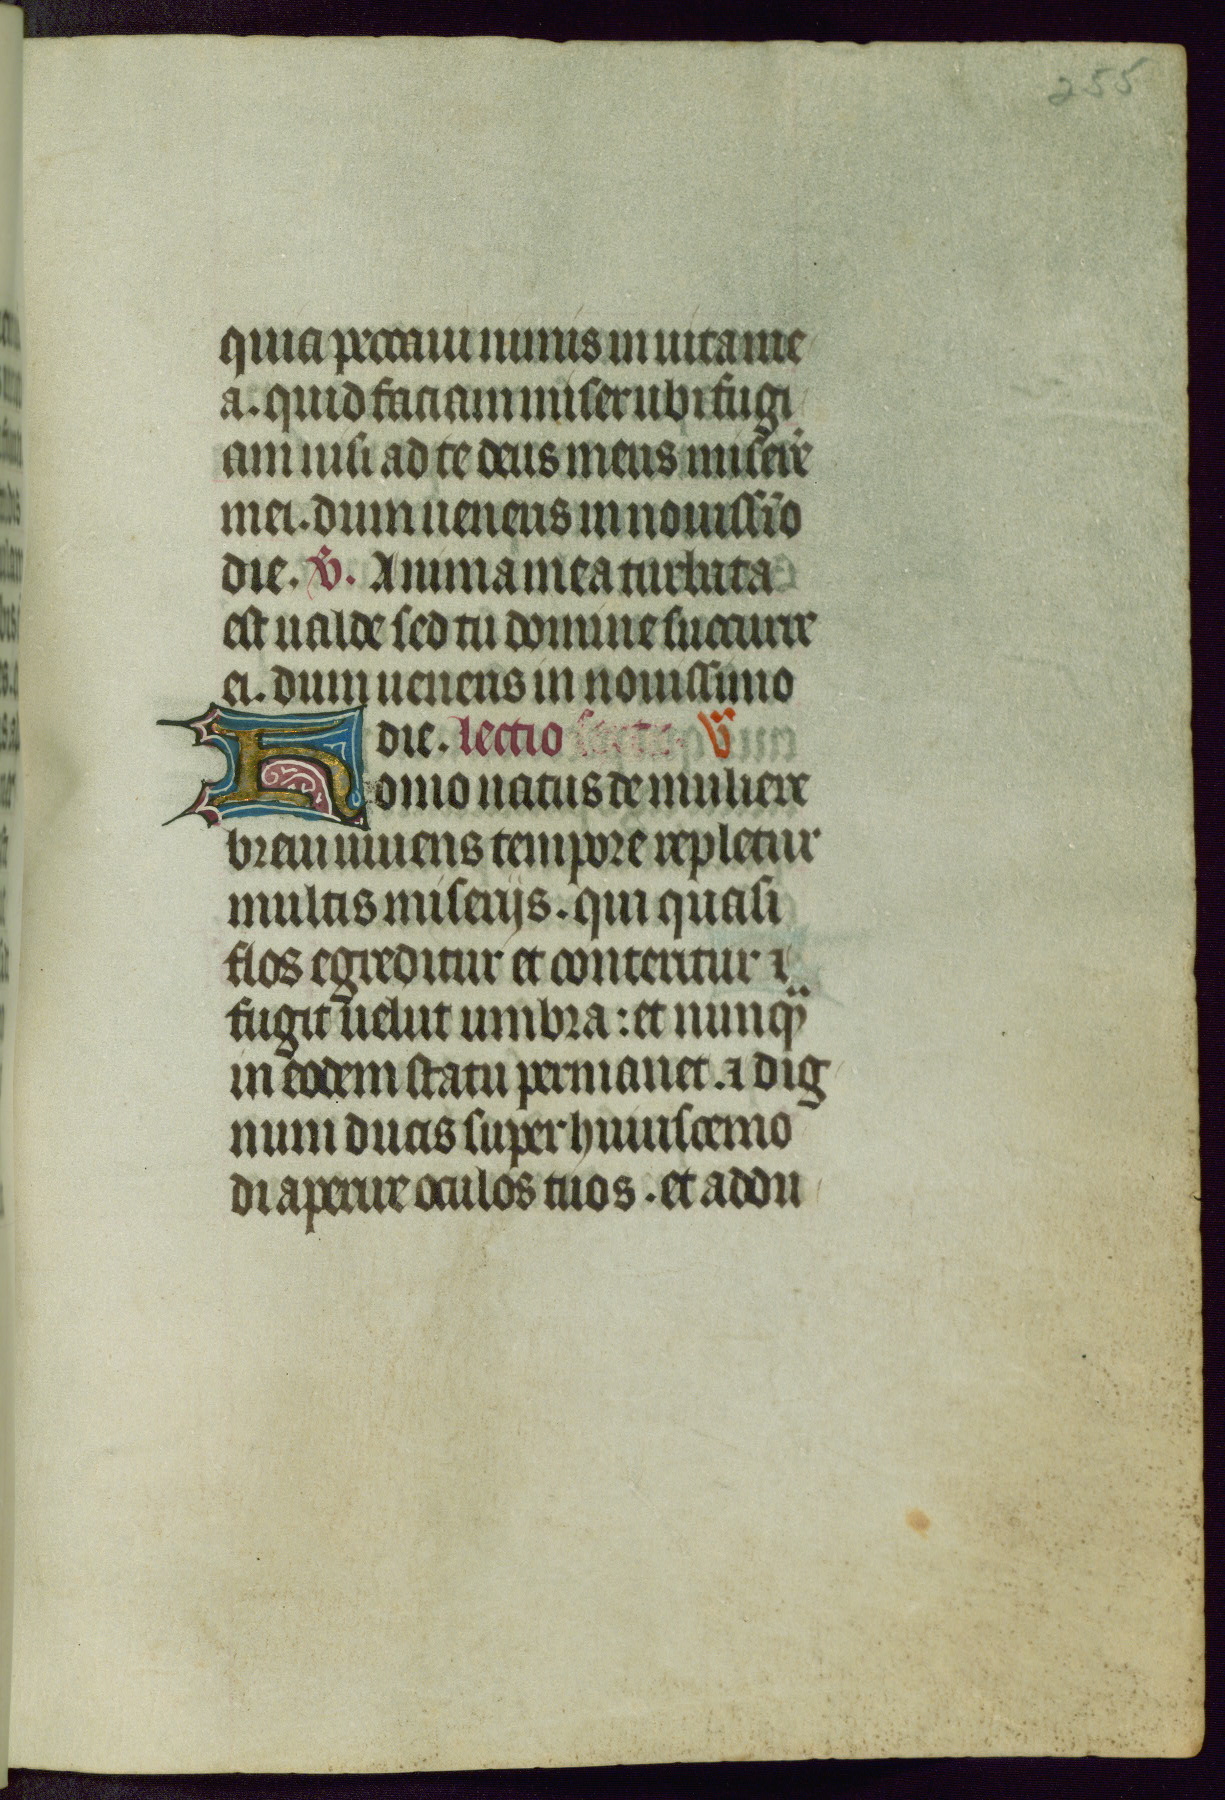 255
quia peccaui nimis in uita me
a. quid faciam miser ubi fugi
am nisi ad te deus meus misere
mei. dum ueneris in nouissīo
die. V. Anima mea turbata
est ualde sed tu domine succurre
ei. dum ueneris in nouissimo
die. lectio
Homo natus de muliere
breui uiuens tempore repletur
multis miserijs. qui quasi
flos egreditur et conteritur ⁊
fugit uelut umbra: et nunq̄
in eodem statu permanet. ⁊ dig
num ducis super huiuscemo
di aperire oculos tuos. et addu